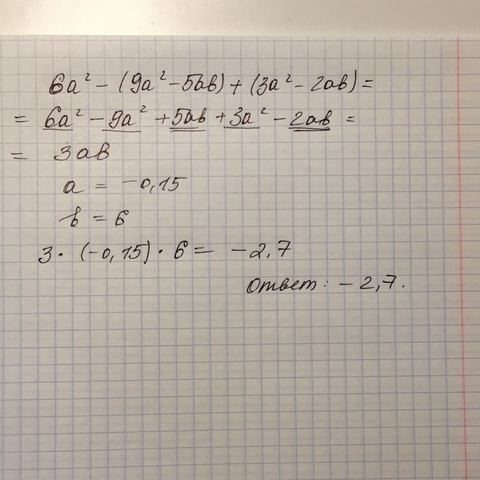 6a² - (9a² - 5ab) + (3a² - 2ab) =
= 6a² - 9a² + 5ab + 3a² - 2ab =
= 3ab
a = -0,15
b = 6
3 · (-0,15) · 6 = -2,7
Ответ: -2,7.